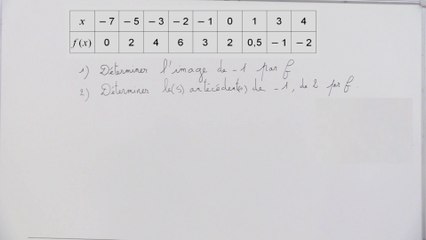 x −7 −5 −3 −2 −1 0 1 3 4
f(x) 0 2 4 6 3 2 0,5 −1 −2
1) Déterminer l'image de -1 par f
2) Déterminer le(s) antécédent(s) de -1, de 2 par f